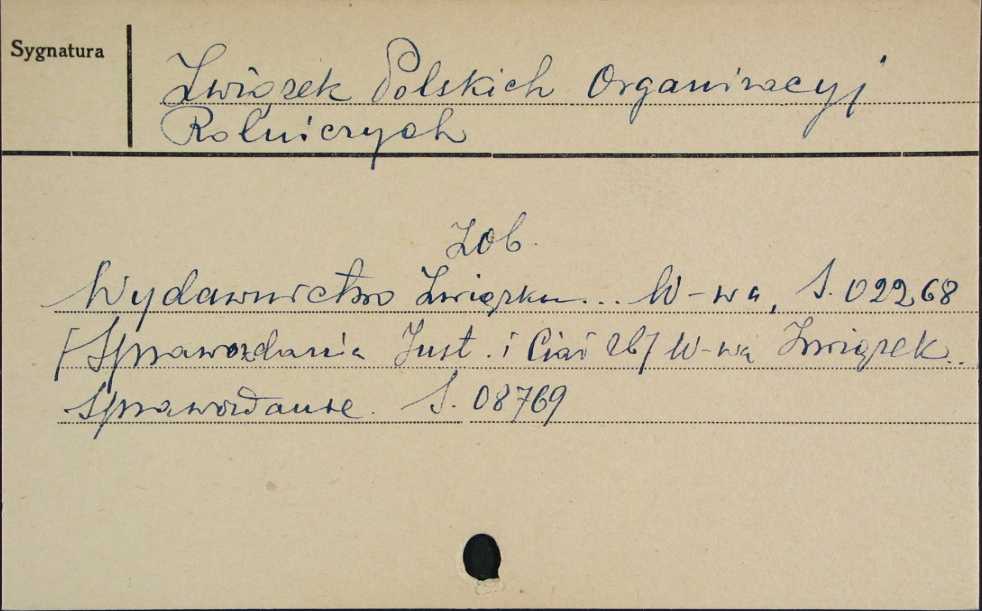 Sygnatura
Związek Polskich Organizacyj
Rolniczych
Zob.
Wydawnictwo Związku... W-wa, S. 02268
[Sprawozdania Inst. i Ciał zb] W-wa Związek..
Sprawozdanie. S. 08769